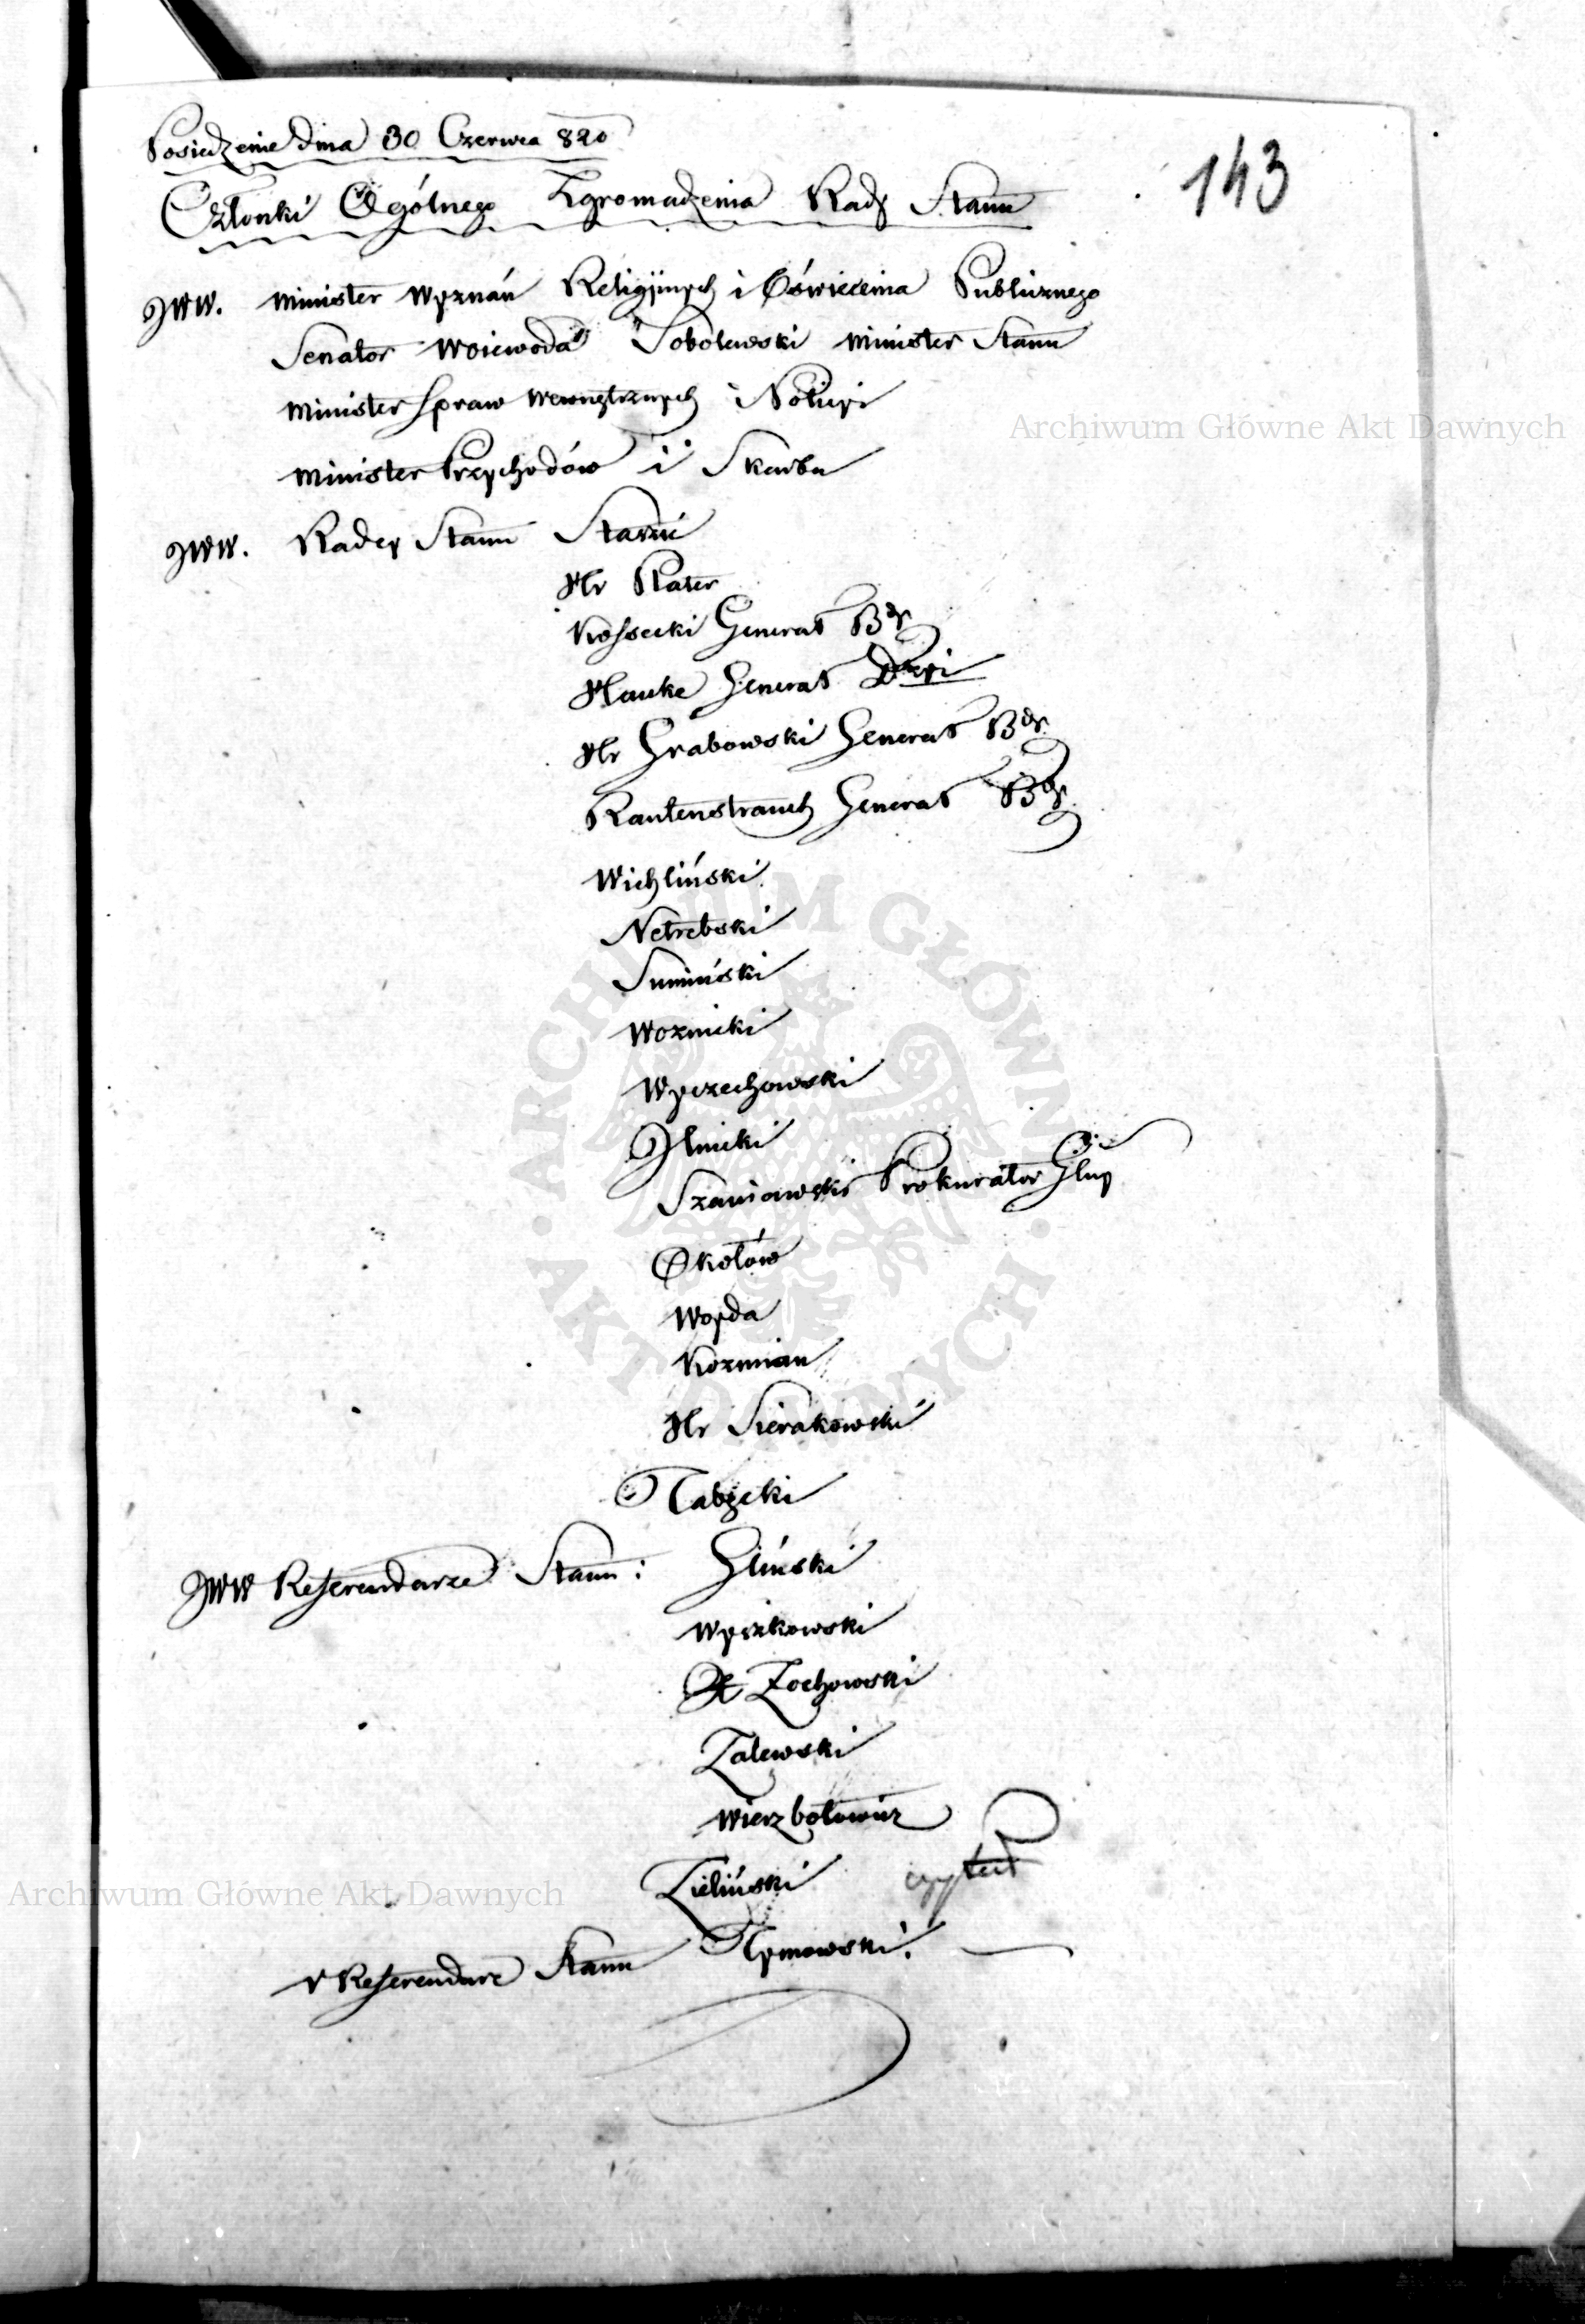 Posiedzenie dnia 30 Czerwca 820
143
Członki Ogólnego Zgromadzenia Rady Stanu
JWW. Minister Wyznań Religijnych i Oświecenia Publicznego
Senator Woiewoda Sobolewski Minister Stanu
Minister Spraw Wewnętrznych i Policyi
Minister Przychodów i Skarbu
JWW. Radcy Stanu Staszic
Hr Plater
Kossecki Generał Bdy
Hauke Generał Dyzyi
Hr Grabowski Generał Bdy
Rautenstrauch Generał Bdy
Wichliński
Netrebski
Sumiński
Woznicki
Wyczechowski
Ilnicki
Szaniawski Prokurator Glny
Okołów
Woyda
Kozmian
Hr Sierakowski
Tabęcki
JWW Referendarze Stanu: Gliński
Wyczkowski
X Zochowski
Zalewski
Wierzbołowicz
Zieliński czytał
W Referendarz Stanu Tymowski.
Archiwum Główne Akt Dawnych
ARCHIWUM GŁÓWNE AKT DAWNYCH
Archiwum Główne Akt Dawnych